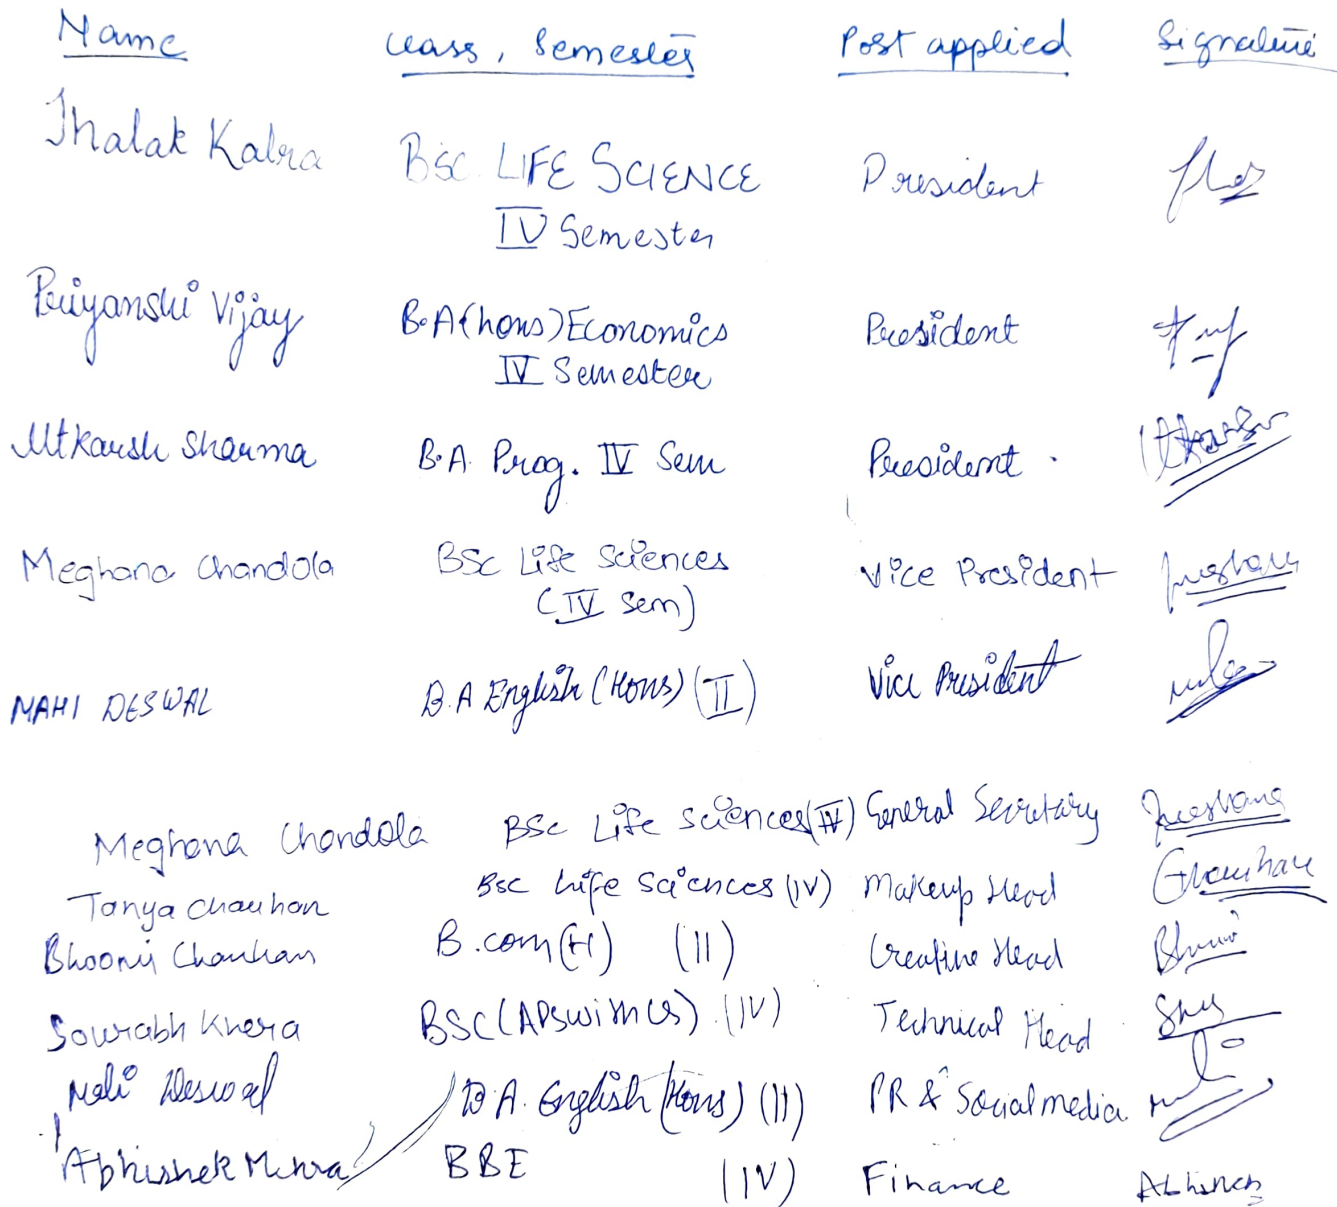 Name Class, Semester Post applied Signature
Jhalak Kalra BSC. LIFE SCIENCE President
IV Semester
Priyanshi Vijay B.A(hons) Economics President
IV Semester
Utkarsh Sharma B.A. Prog. IV Sem President.
Meghana Chandola BSc Life Sciences Vice President Meghana
(IV Sem)
MAHI DESWAL B.A English (Hons) (II) Vice President
Meghana Chandola BSc Life Sciences (IV) General Secretary Meghana
Tanya Chauhan Bsc Life Sciences (IV) Makeup Head
Bhoomi Chauhan B.com(H) (II) Creative Head Bhumi
Sourabh Khera BSC (APS with CS) (IV) Technical Head
Mahi Deswal B.A. English (Hons) (II) PR & Social media
Abhishek Mishra BBE (IV) Finance Abhishek